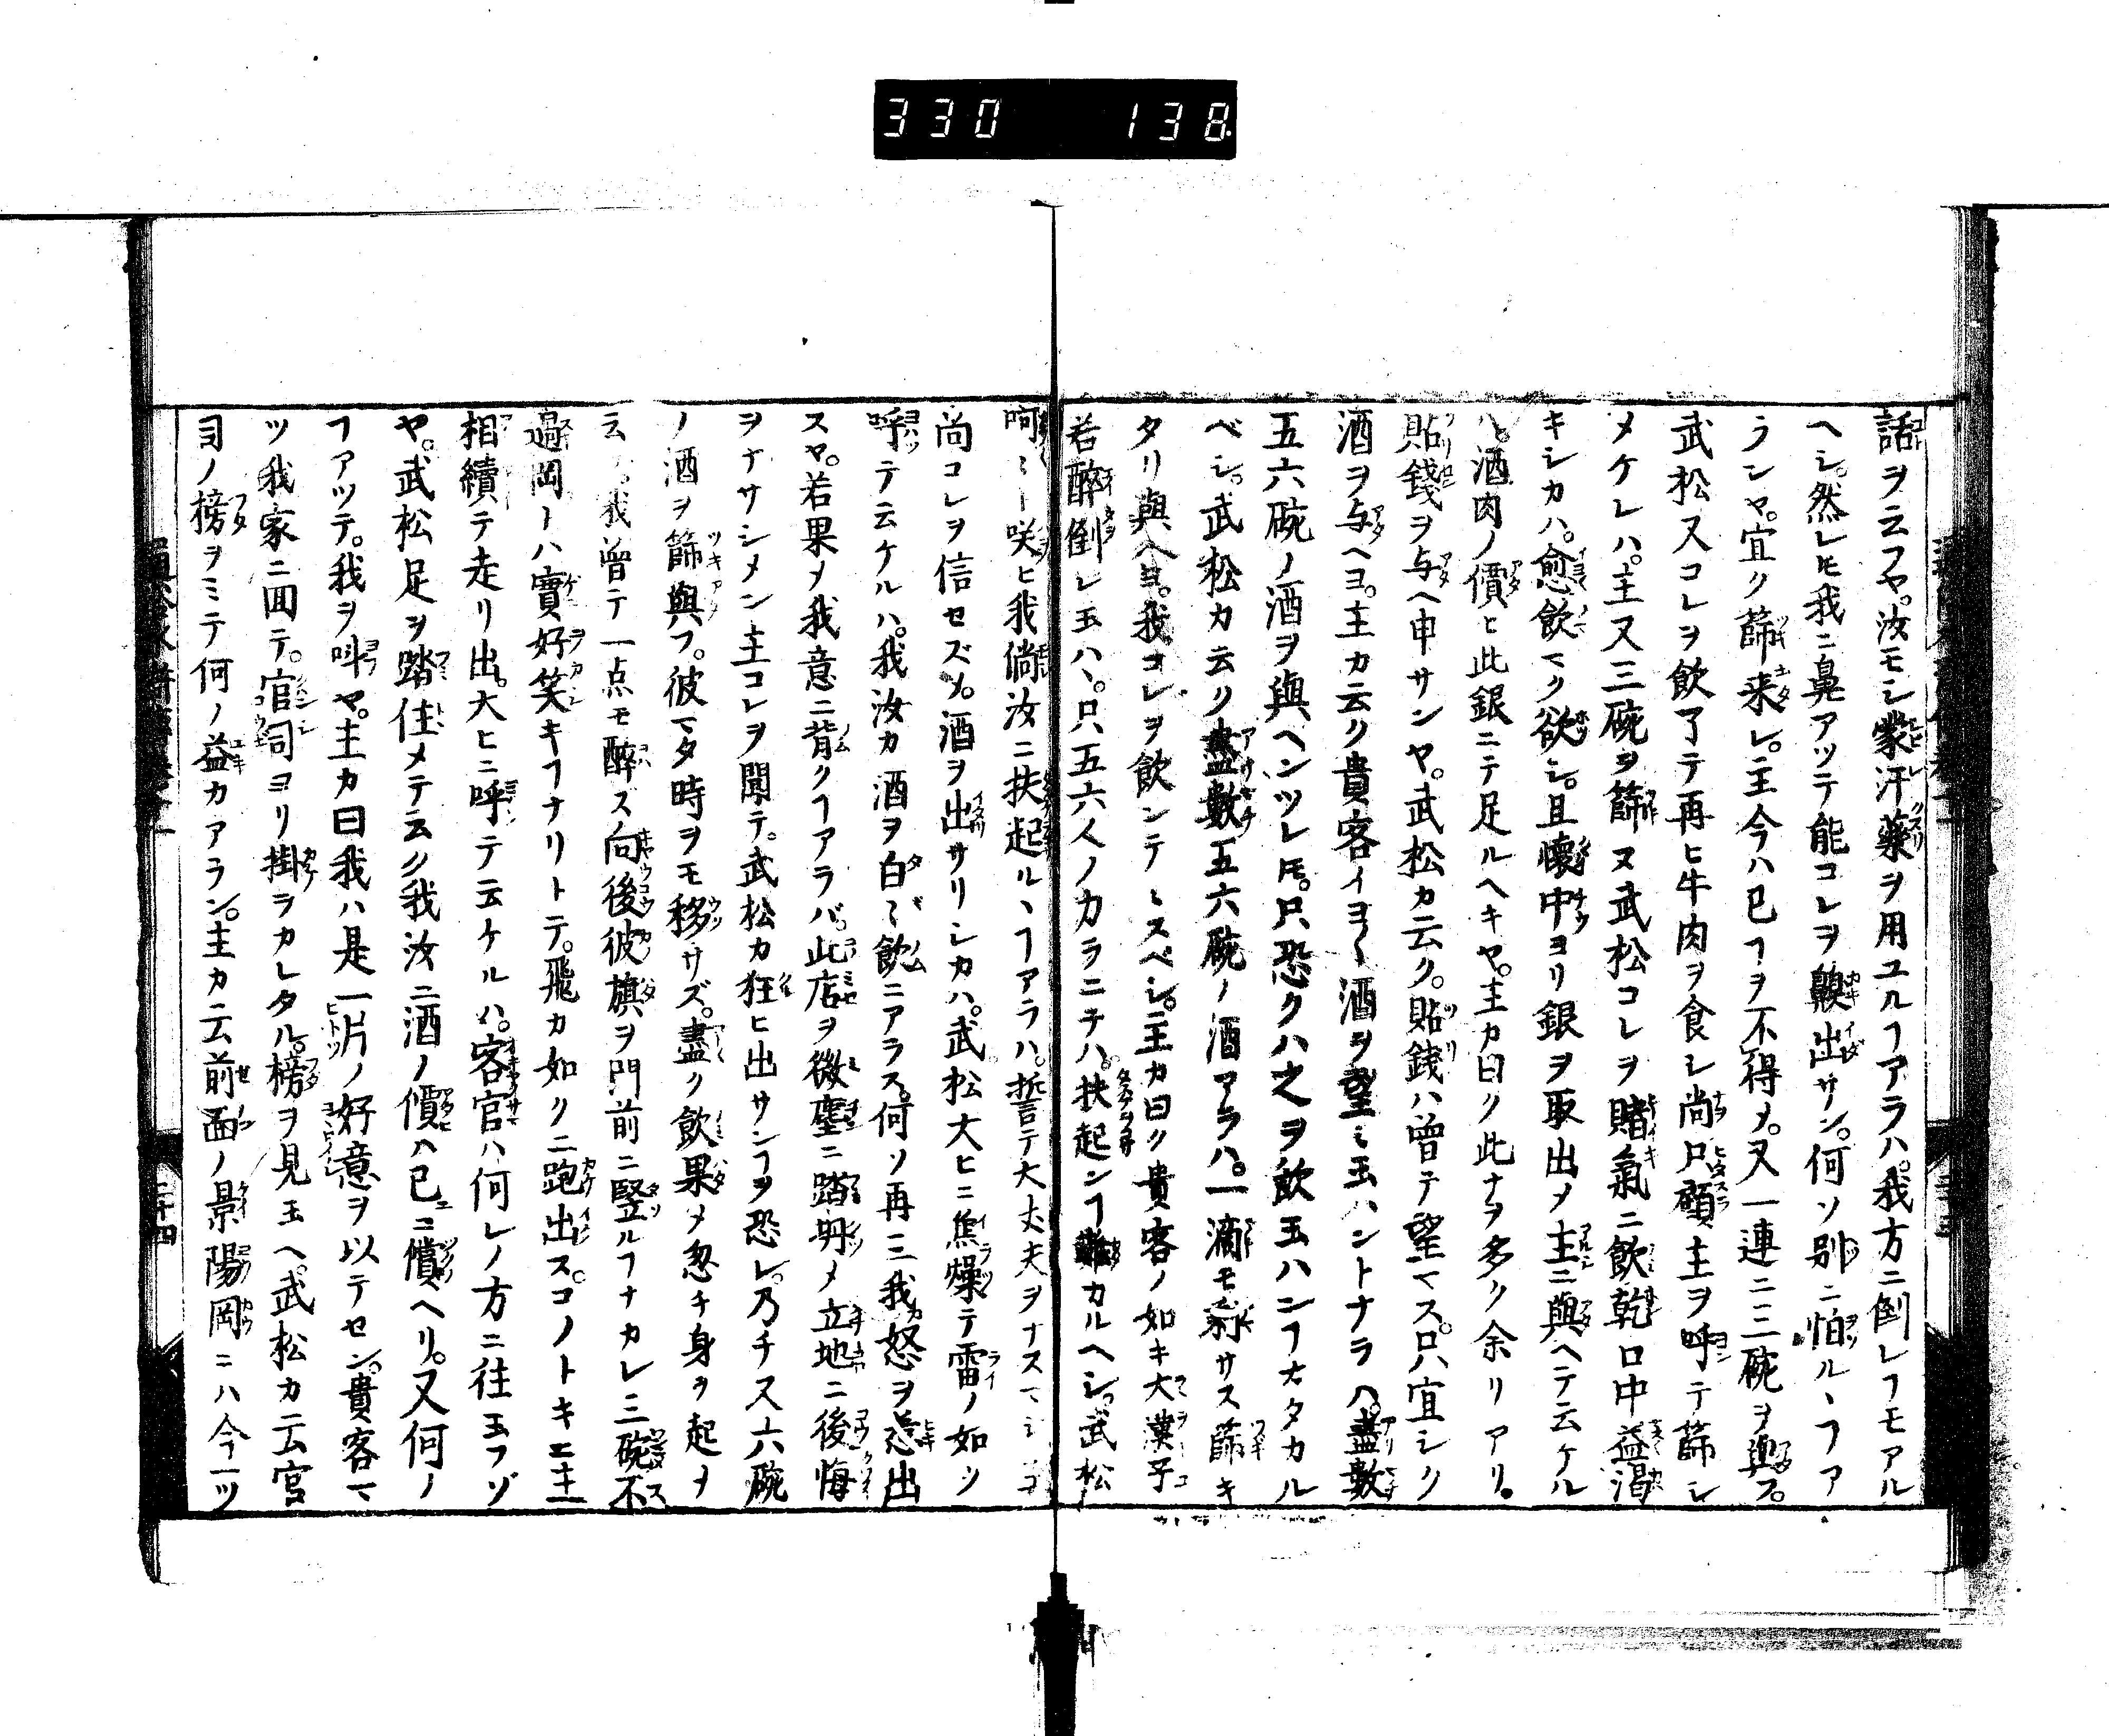 330 138
話ヲ云フヤ。汝モシ蒙汗藥ヲ用ユルヿアラハ。我方ニ倒レヿモアル
ヘシ。然レ𪜈我ニ鼻アツテ能コレヲ齅出サン。何ソ別ニ怕ルヽヿア
ランヤ。宜ク篩来レ。主今ハ已ヿヲ不得メ。又一連ニ三碗ヲ與フ。
武松又コレヲ飲了テ再ヒ牛肉ヲ食シ尚只顧主ヲ呼テ篩シ
メケレハ。主又三碗ヲ篩ヌ武松コレヲ賭氣ニ飲乾口中益渇
キシカハ。愈飲マク欲シ。且懐中ヨリ銀ヲ取出メ主ニ與ヘテ云ケル
ハ。酒肉ノ價ヒ此銀ニテ足ルヘキヤ。主カ曰ク此ナヲ多ク余リアリ。
貼錢ヲ与ヘ申サンヤ。武松カ云ク。貼銭ハ曽テ望マス。只宜シク
酒ヲ与ヘヨ。主カ云ク貴客イヨ〱酒ヲ望ミ玉ハントナラハ。盡數
五六碗ノ酒ヲ與ヘンツレ𪜈。只恐クハ之ヲ飲玉ハンヿ大タカル
ベシ。武松カ云ク盡數五六碗ノ酒アラハ。一滴モ剰サス篩キ
タリ與ヘヨ。我コレヲ飲ンテミスベシ。主カ曰ク貴客ノ如キ大漢子
若醉倒レ玉ハヽ。只五六人ノカラニテハ。扶起ンヿ難カルヘシ。武松
呵〻ト咲ヒ我倘汝ニ扶起ルヽヿアラハ。誓テ大丈夫ヲナスマシ
尚コレヲ信セズ。酒ヲ出サリシカハ。武松大ヒニ焦燥テ雷ノ如ク
呼テ云ケルハ。我汝カ酒ヲ白〻飲ニアラス。何ソ再三我怒ヲ惹出
スヤ。若果メ我意ニ背クヿアラバ。此店ヲ微塵ニ踏毋メ立地ニ後悔
ヲナサシメン主コレヲ聞テ。武松カ狂ヒ出サンヿヲ恐レ。乃チス六碗
ノ酒ヲ篩與フ。彼マタ時ヲモ移サズ。盡ク飲果メ忽チ身ヲ起メ
云ク我曽テ一点モ醉ス向後彼旗ヲ門前ニ竪ルヿナカレ三碗不
過岡トハ實好笑キヿナリトテ。飛カ如クニ跑出ス。コノトキ主
相續テ走リ出。大ヒニ呼テ云ケルハ。客官ハ何レノ方ニ往玉フゾ
ヤ。武松足ヲ踏住メテ云ク我汝ニ酒ノ價ハ已ニ償ヘリ。又何ノ
ヿアツテ。我ヲ呌ヤ。主カ曰我ハ是一片ノ好意ヲ以テセン。貴客マ
ツ我家ニ回テ。官司ヨリ掛ラカレタル。榜ヲ見玉ヘ。武松カ云官
司ノ榜ヲミテ何ノ益カアラン。主カ云前面ノ景陽岡ニハ今一ツ